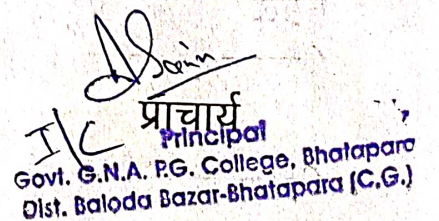 प्राचार्य
I/C Principal
Govt. G.N.A. P.G. College, Bhatapara
Dist. Baloda Bazar-Bhatapara (C.G.)